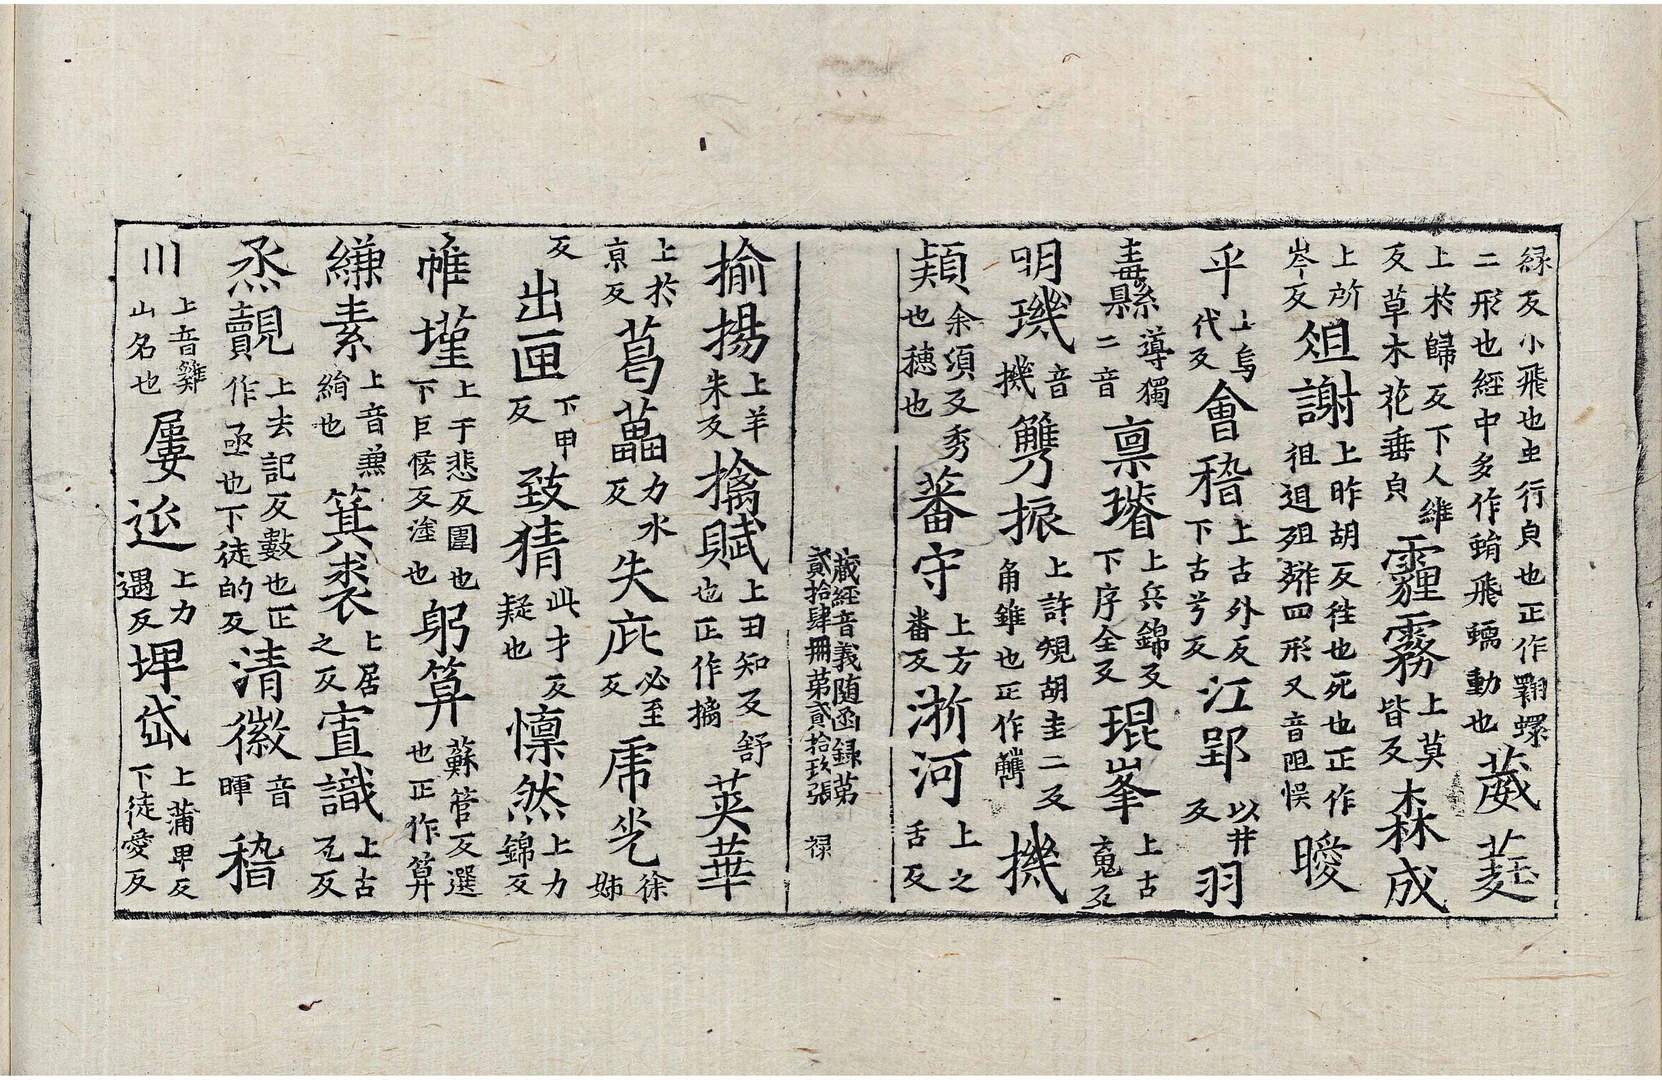 緑反小飛也虫行皃也正作翾螺
二形也經中多作蜎飛蠕動也葳蕤
上於歸反下人維
反草木花垂皃霾霧上莫皆反森成
上所
岑反殂謝上昨胡反徃也死也正作
徂迌殂辧四形又音阻悮曖
乎上烏
代反會稽上古外反
下古兮反江郢以井
反羽
毒縣導獨
二音稟璿上兵錦反
下序全反琨峯上古
䰟反
明璣音
機觹振上許䂓胡圭二反
角錐也正作觿機
頴余湏反秀
也穗也蕃守上方
番反浙河上之
舌反
藏經音義随函録第
貳拾肆冊第貳拾玖張 禄
揄揚上羊
朱反摛賦上丑知反舒
也正作摛英華
上於
京反葛藟力水
反失庇必至
反虎光徐
姊
反出匣下甲
反致猜此才反
疑也懍然上力
錦反
帷墐上于悲反圍也
下巨𠊱反塗也躬筭蘇管反選
也正作算
縑素上音兼
絹也箕裘上居
之反寘識上古
瓦反
烝觀上去記反數也正
作亟也下徒的反清徽音
暉稽
川上音雞
山名也屢近上力
遇反埤岱上蒲卑反
下徒愛反